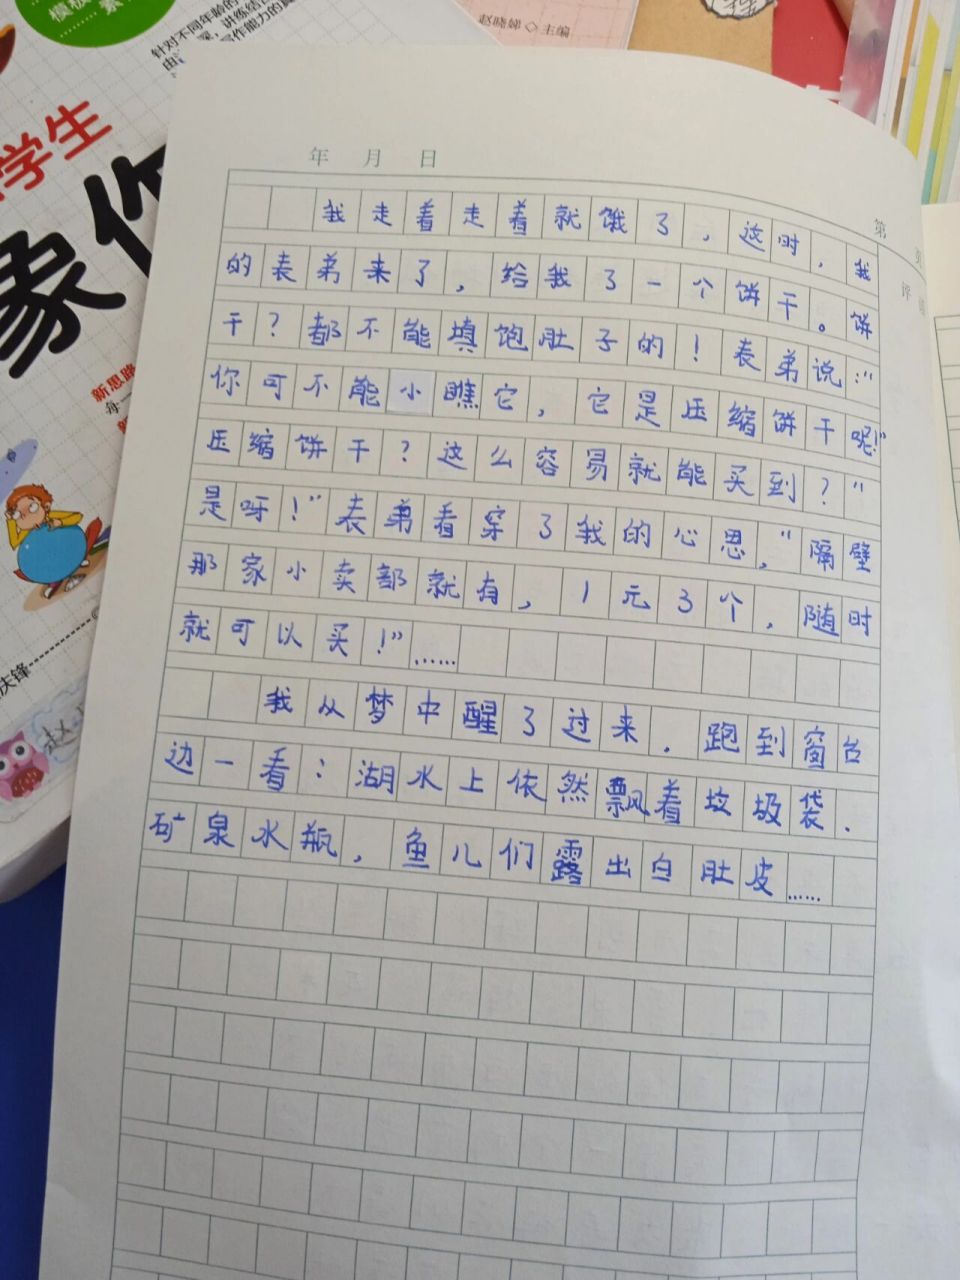 模板
素
针对不同年龄的
深,讲练结
写作能力的真
赵晓娣◇主编
学生
象作
新思路
每一
庆锋
年 月 日
第 页
评语
我走着走着就饿了,这时,我
的表弟来了,给我了一个饼干。饼
干?都不能填饱肚子的!表弟说:“
你可不能小瞧它,它是压缩饼干呢!”
压缩饼干?这么容易就能买到?“
是呀!”表弟看穿了我的心思,“隔壁
那家小卖部就有,1元3个,随时
就可以买!”……
我从梦中醒了过来.跑到窗台
边一看:湖水上依然飘着垃圾袋.
矿泉水瓶,鱼儿们露出白肚皮……